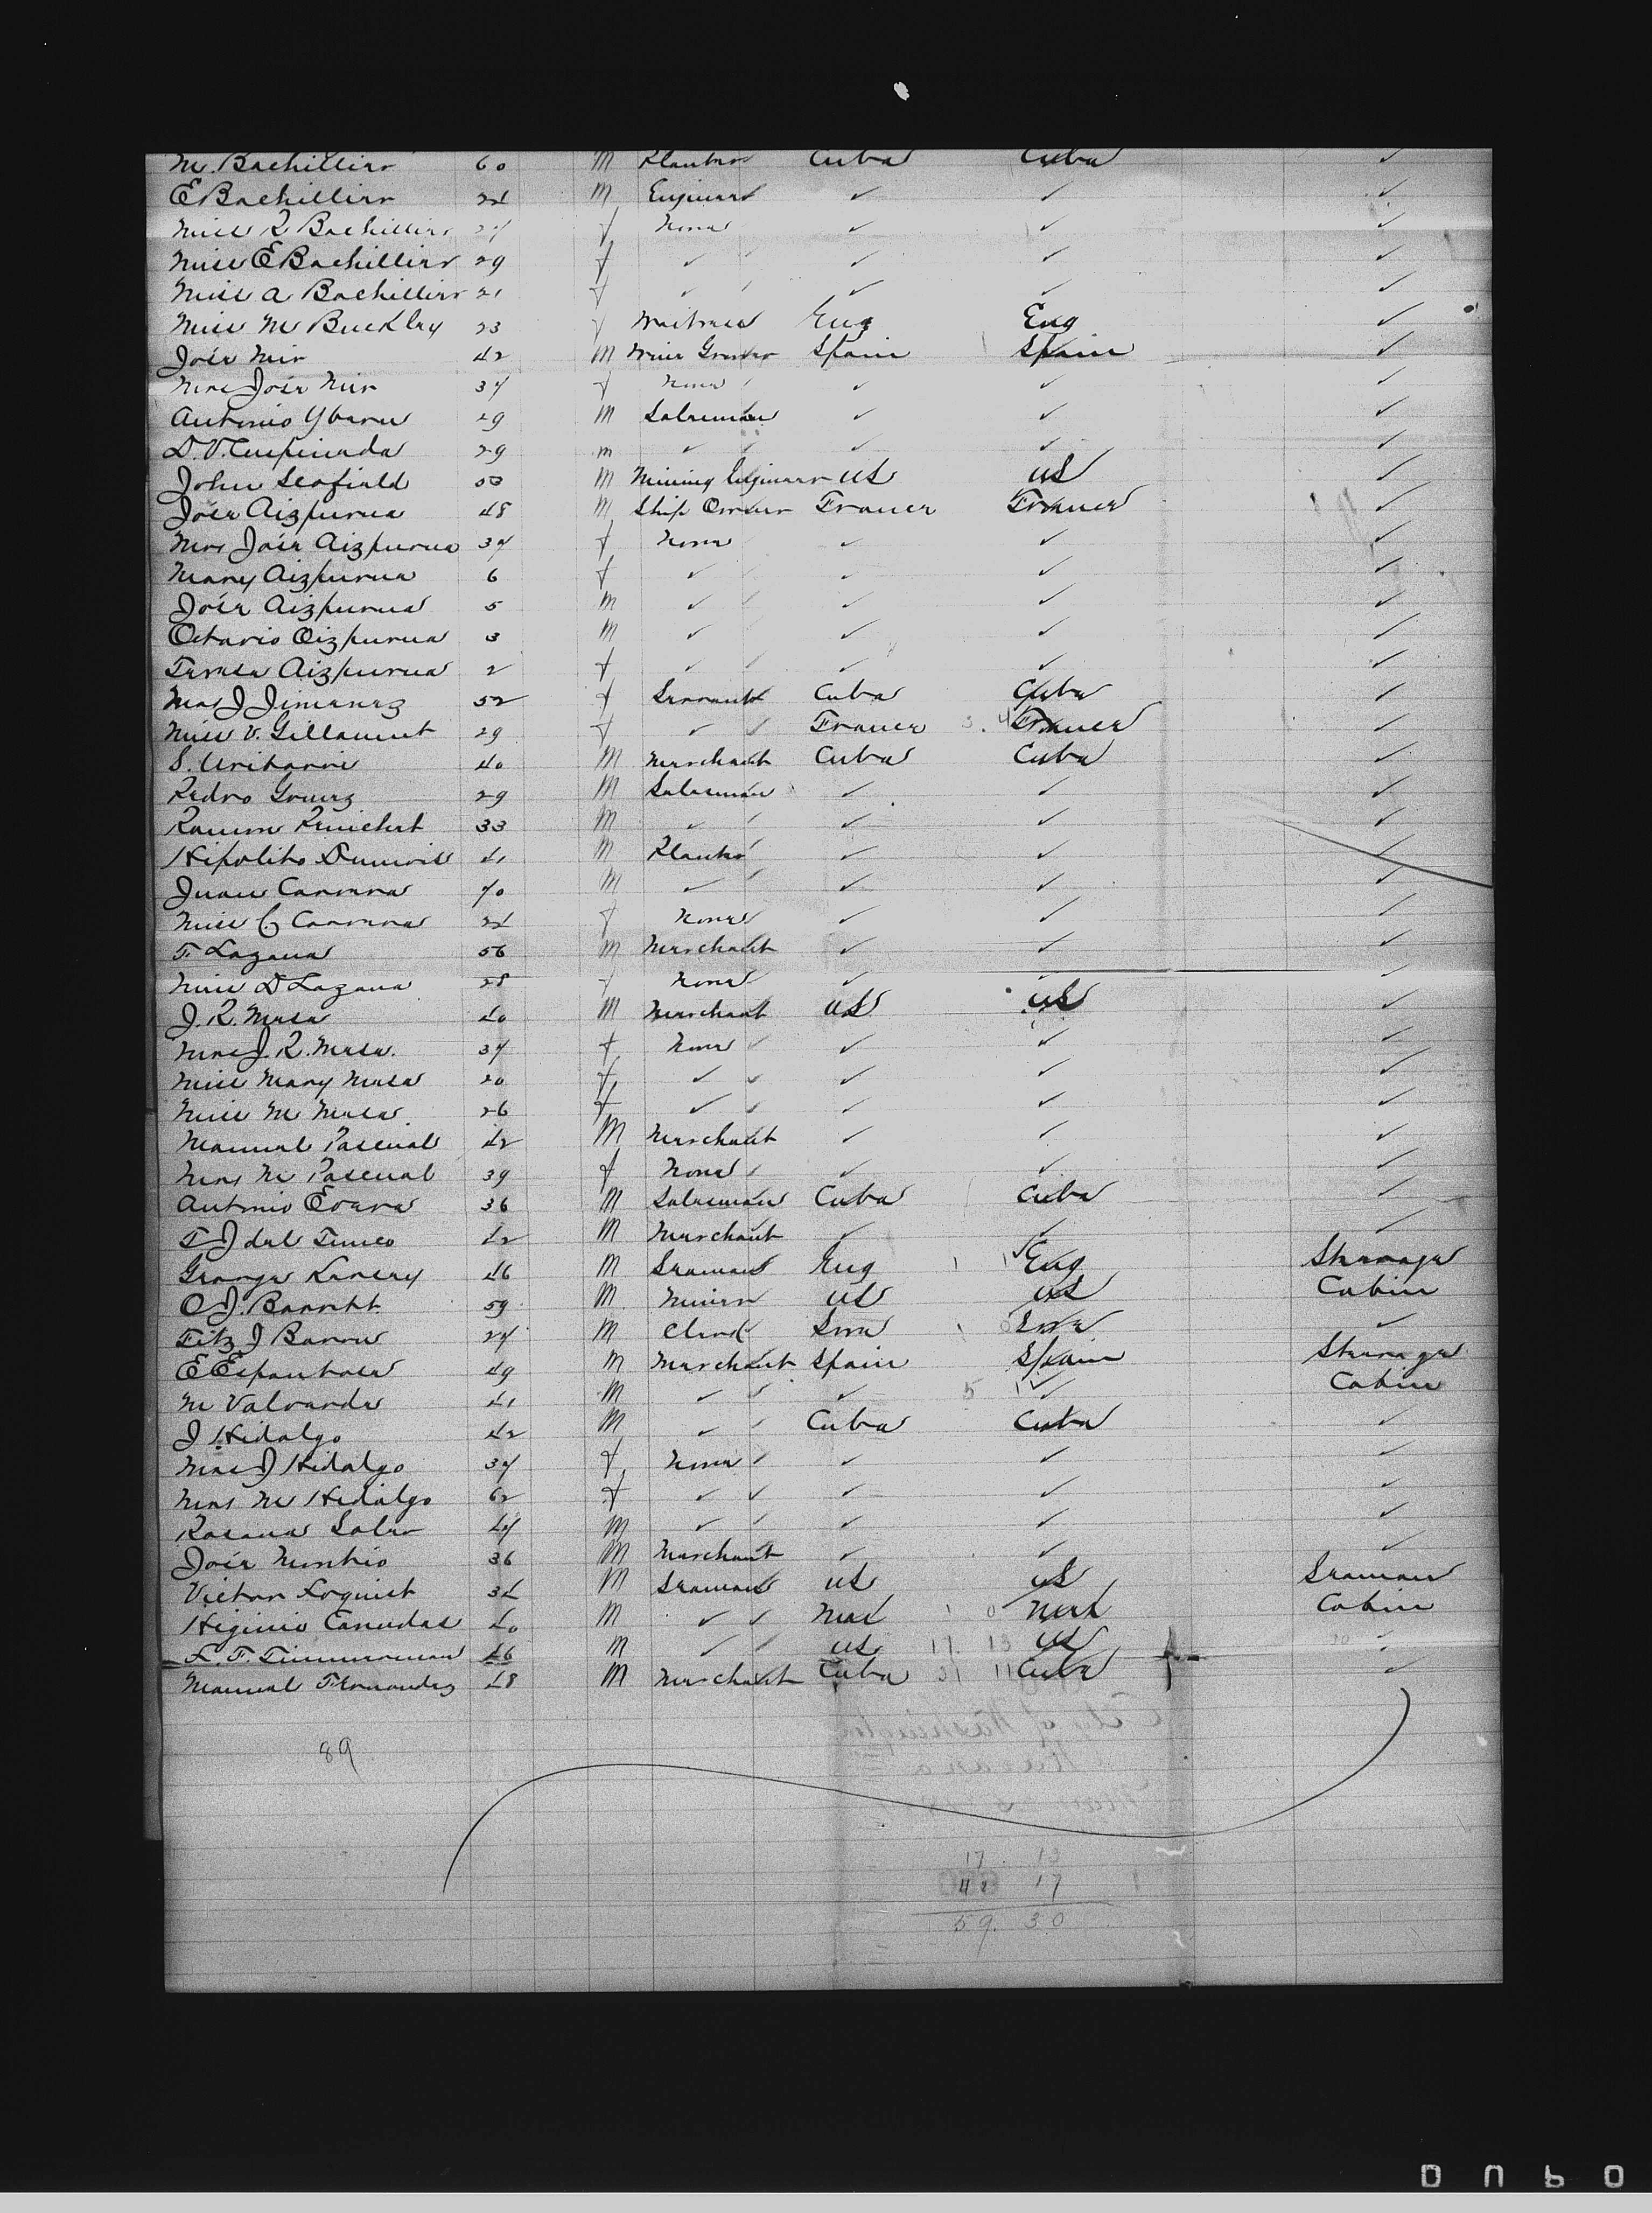 M. Bachiller 60 M Planter Cuba Cuba ✓
E Bachiller 24 M Engineer ✓ ✓ ✓
Miss R Bachiller 27 f None ✓ ✓ ✓
Miss E Bachiller 29 f ✓ ✓ ✓ ✓
Miss A Bachiller 21 f ✓ ✓ ✓ ✓
Miss M Buckley 23 f Waitress Eng Eng ✓
José Mir 42 M Wine Grower Spain Spain ✓
Mrs José Mir 37 f None ✓ ✓ ✓
Antonio Ybarra 29 M Salesman ✓ ✓ ✓
D. V. 29 m ✓ ✓ ✓ ✓
John Scofield 50 M Mining Engineer US US ✓
José Aizpurua 48 M Ship Owner France France ✓
Mrs José Aizpurua 37 f None ✓ ✓ ✓
Mary Aizpurua 6 f ✓ ✓ ✓ ✓
José Aizpurua 5 M ✓ ✓ ✓ ✓
Octavio Aizpurua 3 M ✓ ✓ ✓ ✓
Teresa Aizpurua 2 f ✓ ✓ ✓ ✓
Mrs J Jimenez 52 f Servant Cuba Cuba ✓
Miss V. Gillamut 29 f ✓ France France ✓
S. Uribarri 40 M Merchant Cuba Cuba ✓
Pedro Gomez 29 M Salesman ✓ ✓ ✓
Ramon 33 M ✓ ✓ ✓ ✓
Hipolito Dumois 41 M Planter ✓ ✓ ✓
Juan Carrera 70 M ✓ ✓ ✓ ✓
Miss C. Carrera 24 f None ✓ ✓ ✓
F. Lazana 56 M Merchant ✓ ✓ ✓
Miss D Lazana 28 f None ✓ ✓ ✓
J. R. Mesa 40 M Merchant US US ✓
Mrs J R. Mesa. 37 f None ✓ ✓ ✓
Miss Mary Mesa 20 f ✓ ✓ ✓ ✓
Miss M Mesa 26 f ✓ ✓ ✓ ✓
Manuel Pascual 42 M Merchant ✓ ✓ ✓
Mrs M Pascual 39 f None ✓ ✓ ✓
Antonio 36 M Salesman Cuba Cuba ✓
F J del 42 M Merchant ✓ ✓ ✓
George 46 M Seaman Eng Eng Steerage
O J. Barrett 59 M Miner US US Cabin
Fitz J 27 M Clerk ✓
E 49 M Merchant Spain Spain Steerage
M Valverde 41 M ✓ ✓ ✓ Cabin
J Hidalgo 42 M ✓ Cuba Cuba ✓
Mrs J Hidalgo 37 f None ✓ ✓ ✓
Mrs M Hidalgo 62 f ✓ ✓ ✓ ✓
47 M ✓ ✓ ✓ ✓
José 36 M Merchant ✓ ✓ ✓
Victor 34 M Seaman US US
Higinio Canudas 40 M ✓ Mex Mex Cabin
L. F. Timmerman 46 M ✓ US 17 13 US ✓
Manuel Fernandez 48 M Merchant Cuba Cuba ✓
89
17 13
42 17
59. 30